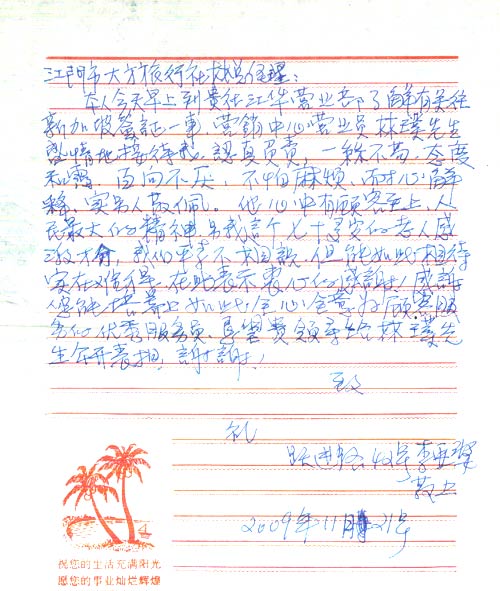 江門市大方旅行社赵总经理:
本人今天早上到貴社江华营业部了解有关往
新加坡簽証一事,营銷中心营业员林璞先生
热情地接待我,認真負責,一絲不苟,态度
和藹,百问不厌,不怕麻烦,而耐心解
釋,实另人敬佩。他心中有顾客至上,人
民最大的精神,另我这个七十多岁的老人感
激才會,我们并不求回報,但能如此相待
实在难得,在此表示衷心的感謝!感謝
您能培養上如此全心全意为顧客服
务的优秀服务员,真望貴領导给林璞先
生公开表揚,謝謝!
致
礼
李亚
敬上
2009年11月21号
祝您的生活充满阳光
愿您的事业灿烂辉煌